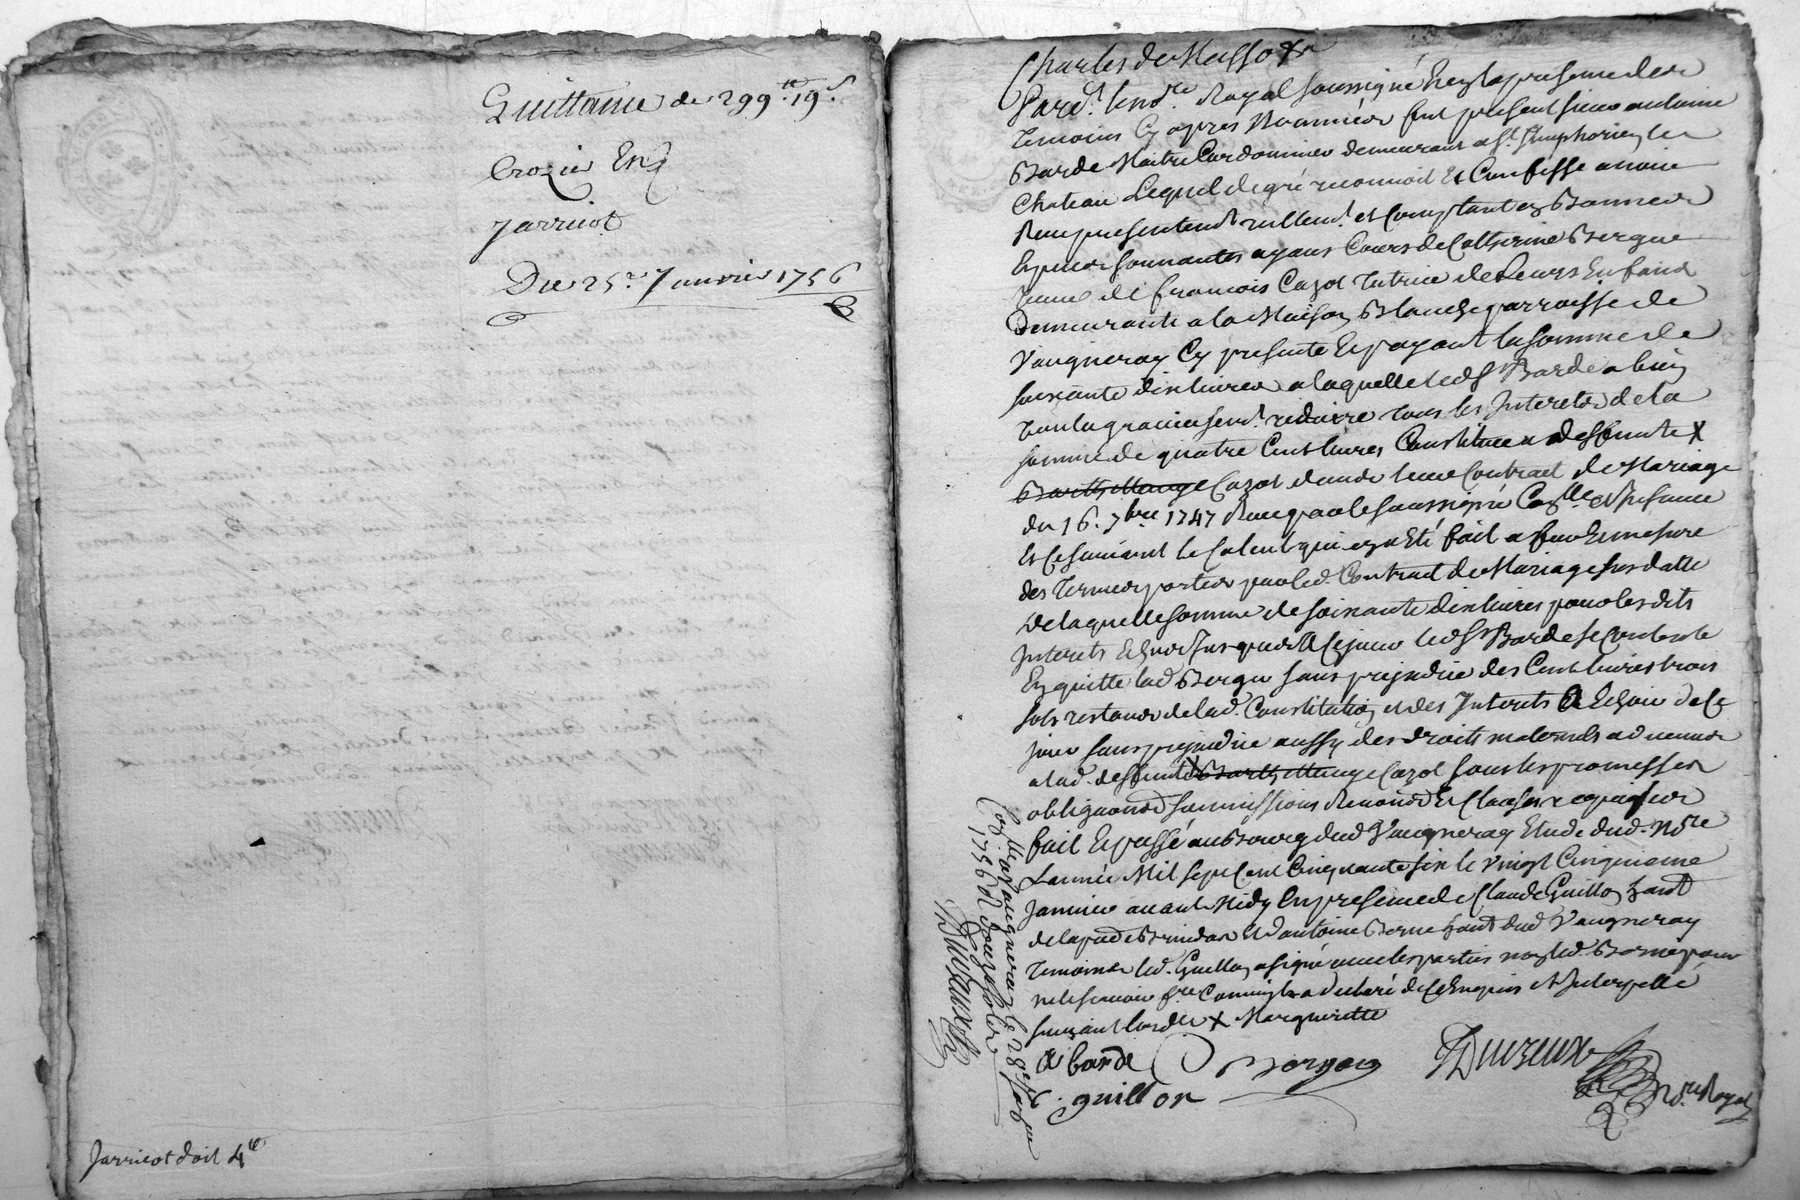 Quittance de 299.tt 19.s
Crozier En
Jarricot
Du 25.e Janvier 1756
Jarricot doit 4tt
Charles de Masso
Pard.t le no.re Royal soussigné En la presence de
Temoins Cy apres Nommés fut present sieur antoine
Barde Maitre Cordonnier demeurant a St. Simphorien le
Chateau Lequel de gré reconnoit Et Confesse avoir
Reçu presentemt. rellemt. et Comptant en Bonnes
Especes sonnantes ayans Cours de Catherine Bergue
veuve de françois Cazot Tutrice de Leurs Enfans
Demeurante a la Maison Blanche parroisse de
Vaugneray Cy presente Et payant la somme de
soixante dix livres a laquelle led. Sr Barde a bien
voulu gracieusemt. reduire tous les Interets de la
somme de quatre Cent livres Constituée a deffunte X
Cazot dans leur Contract de Mariage
du 16. 7bre 1747 Reçu par le soussigné Con.lle et
Et Ce suivant le Calcul qui en a Eté fait a fur Et mesure
des Termes portés par led. Contract de Mariage susdatté
De laquelle somme de soixante dix livres pour lesdits
Interets Echus Jusques a Ce jour led. Sr Barde se Contente
En quitte lad. Bergue sans prejudice des Cent livres trois
sols restants de lad. Constitution et des Interets a Echoir de Ce
jour sans prejudice aussy des droits maternels advenus
a lad. deffunte X Cazot sous les promesses
obligations soumissions Renonces Et Clauses requises
fait Et passé au Bourg dud. Vaugneray Etude dud. No.re
L'année Mil sept Cent Cinquante six le vingt Cinquieme
Janvier avant Midy En presence de Claude Guillon
de la par de Brindas Et d'antoine Berne dud. Vaugneray
Temoins led. Guillon a signé avec les parties non led. Berne pour
ne le sçavoir a declaré de Ce Enquis Et Interpellé
suivant lord.ce X Marguerite
A barde
Bergue
Duzeux
guillon
No.re Royal
Con.lle a Vaugneray le 28e
1756 R douze sols
Duzeux